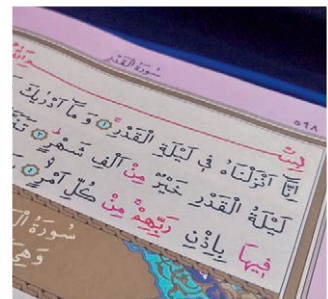 سُورَةُ الْقَدْرِ
٥٩٨
إِنَّا أَنْزَلْنَاهُ فِي لَيْلَةِ الْقَدْرِ ۝١ وَمَا أَدْرٰيكَ
لَيْلَةُ الْقَدْرِ خَيْرٌ مِنْ أَلْفِ شَهْرٍ ۝٣
فِيهَا بِإِذْنِ رَبِّهِمْ مِنْ كُلِّ أَمْرٍ ۝٤
سُورَةُ
وَهِيَ